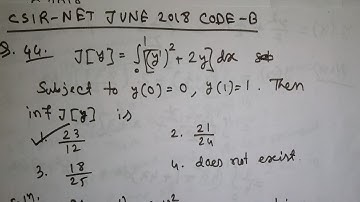 CSIR-NET JUNE 2018 CODE-B
Q. 44. J[y] = ∫₀¹ [(y')² + 2y] dx
Subject to y(0) = 0, y(1) = 1. Then
inf J[y] is
1. 23/12 2. 21/24
3. 18/25 4. does not exist.